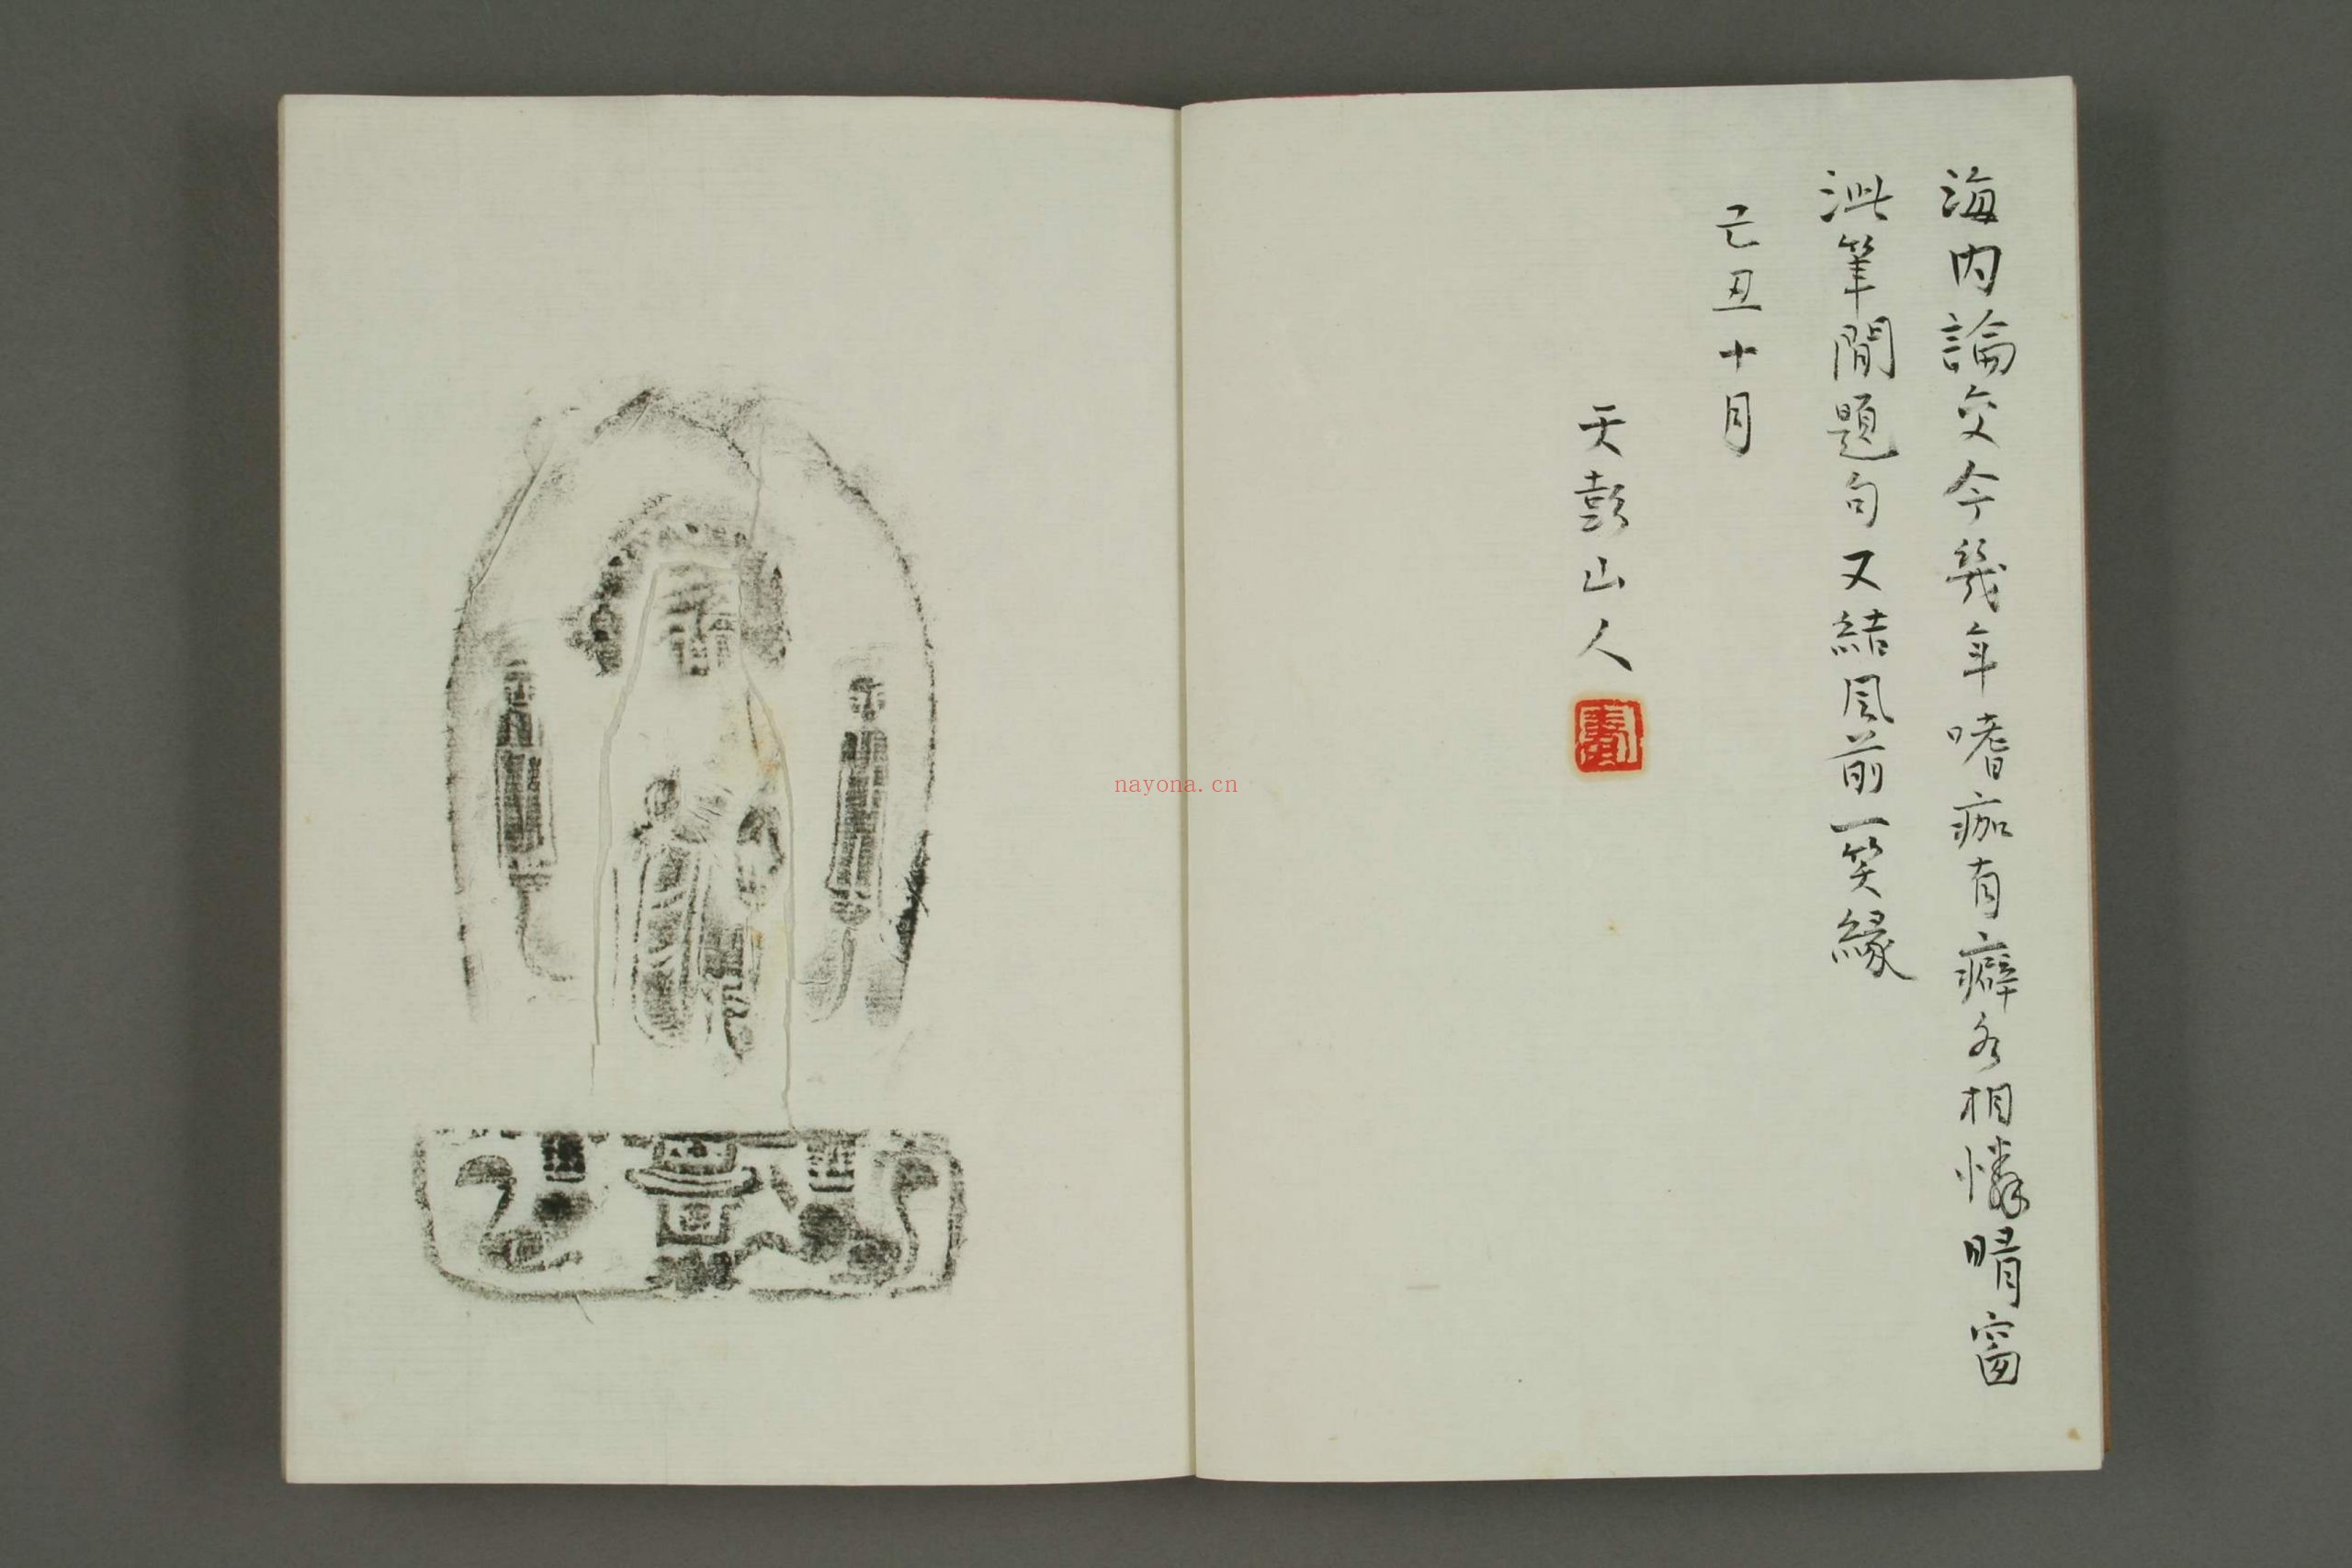 海内論交今幾年嗜痂有癖各相憐晴窗
泚筆閒題句又結風前一笑緣
己丑十月
天彭山人
nayona.cn